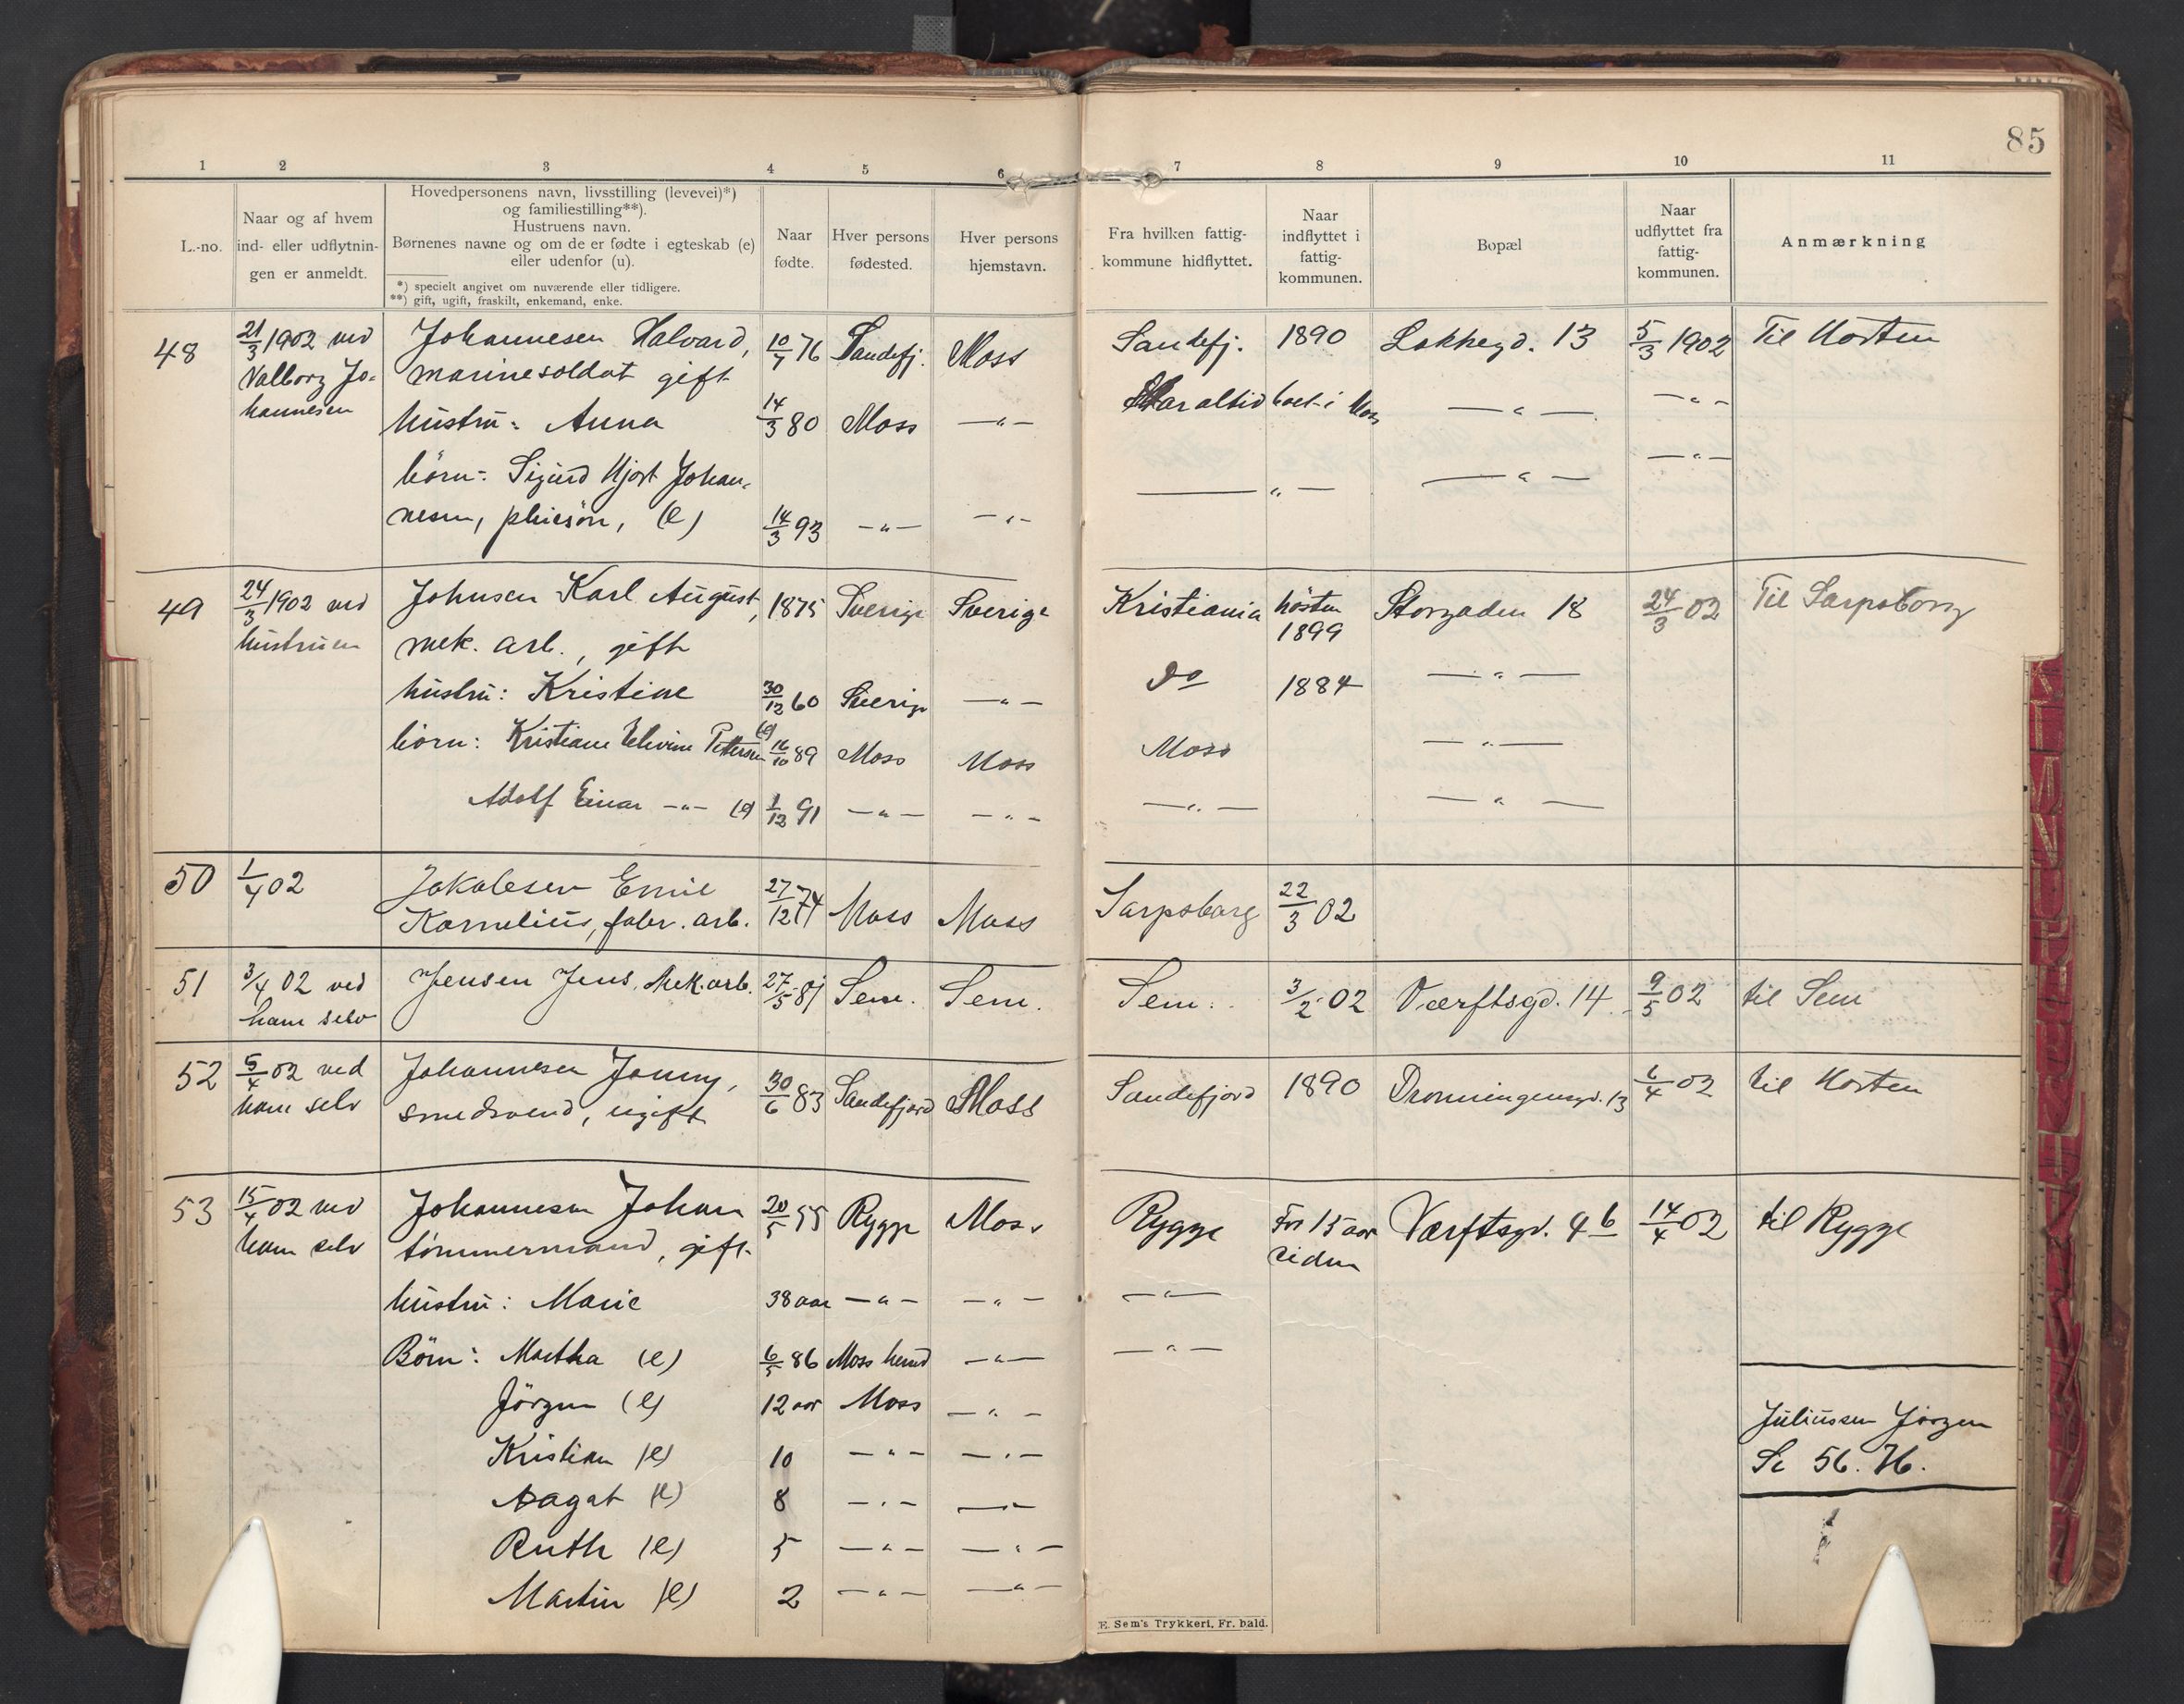 85
1 2 3 4 5 6 7 8 9 10 11
L.-no.
Naar og af hvem
ind- eller udflytnin-
gen er anmeldt.
Hovedpersonens navn, livsstilling (levevei)*)
og familiestilling**).
Hustruens navn.
Børnenes navne og om de er fødte i egteskab (e)
eller udenfor (u).
*) specielt angivet om nuværende eller tidligere.
**) gift, ugift, fraskilt, enkemand, enke.
Naar
fødte.
Hver persons
fødested.
Hver persons
hjemstavn.
Fra hvilken fattig-
kommune hidflyttet.
Naar
indflyttet i
fattig-
kommunen.
Bopæl
Naar
udflyttet fra
fattig-
kommunen.
Anmærkning
48 21/3 1902 ved Johannesen Halvard, 10/7 76 Sandefj. Moss Sandefj. 1890 Lokkegd. 13 5/3 1902 Til Horten
Valborg Jo- marinesoldat gift
hannesen hustru: Anna 14/3 80 Moss —"— Har altid boet i Moss —"— —"—
börn: Sigurd Hjort Johan- —"— —"— —"—
nesen, pleiesön, (e) 14/3 93 —"— —"—
49 24/3 1902 ved Johnsen Karl August, 1875 Sverige Sverige Kristiania hösten Storgaden 18 24/3 02 Til Sarpsborg
hustruen mek. arb., gift 1899
hustru: Kristine 30/12 60 Sverige —"— Do 1884 —"—
börn: Kristiane Elvine Pettersen (e) 16/10 89 Moss Moss Moss —"—
Adolf Einar —"— (e) 1/12 91 —"— —"— —"— —"—
50 1/4 02 Jakobsen Emil 27/12 74 Moss Moss Sarpsborg 22/3 02
Kornelius, fabr. arb.
51 3/4 02 ved Jensen Jens, Mek. arb. 27/5 81 Sem. Sem. Sem. 3/2 02 Værftsgd. 14 9/5 02 til Sem
ham selv
52 5/4 02 ved Johannesen Jonny, 30/6 83 Sandefjord Moss Sandefjord 1890 Dronningensgd. 13 6/4 02 til Horten
ham selv smedsvend, ugift
53 15/4 02 ved Johannesen Johan 20/5 55 Rygge Moss Rygge For 15 aar Værftsgd. 4 b 14/4 02 til Rygge
ham selv tömmermand, gift siden
hustru: Marie 38 aar —"— —"— —"—
Börn: Martha (e) 6/5 86 Moss herred —"— —"—
Jörgen (e) 12 aar Moss —"—
Kristian (e) 10 —"— —"—
Aagot (e) 8 —"— —"—
Ruth (e) 5 —"— —"—
Martin (e) 2 —"— —"—
Juliussen Jörgen
Se 56. H.
E. Sem's Trykkeri, Fr. hald.